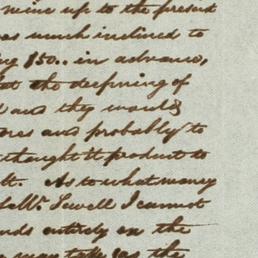 mine up to the present
es much inclined to
g $50.. in advance,
t the deepning of
d and they would
res and probably to
thought it product to
lt. As to what money
Mr. Sewell I cannot
nds entirely on the
may take as the